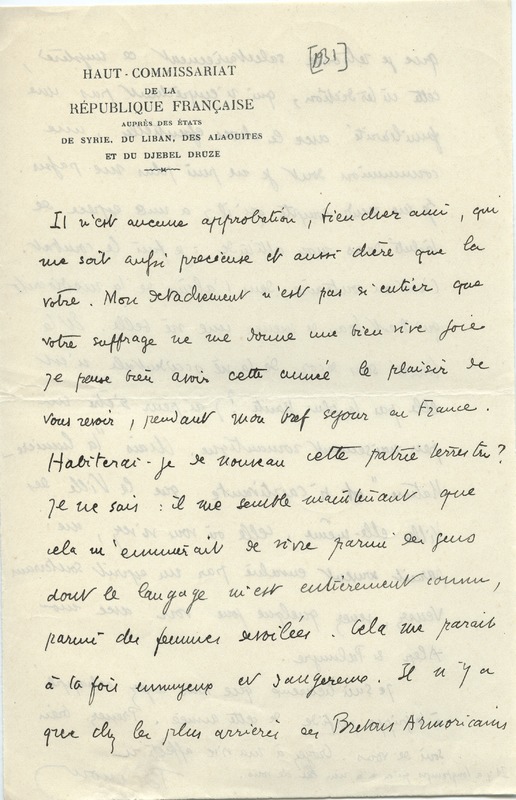 [1931]
HAUT-COMMISSARIAT
DE LA
RÉPUBLIQUE FRANÇAISE
AUPRÈS DES ÉTATS
DE SYRIE, DU LIBAN, DES ALAOUITES
ET DU DJEBEL DRUZE
Il n'est aucune approbation, bien cher ami, qui
me soit aussi precieuse et aussi chère que la
votre. Mon detachement n'est pas si entier que
votre suffrage ne me donne une bien vive joie
Je pense bien avoir cette année le plaisir de
vous revoir, pendant mon bref sejour en France.
Habiterai-je de nouveau cette patrie terrestre?
Je ne sais : il me semble maintenant que
cela m'ennuierait de vivre parmi des gens
dont le langage m'est entièrement connu,
parmi des femmes devoilées. Cela me parait
à la fois ennuyeux et dangereux. Il n'y a
que chez les plus arrierés des Bretons Armoricains